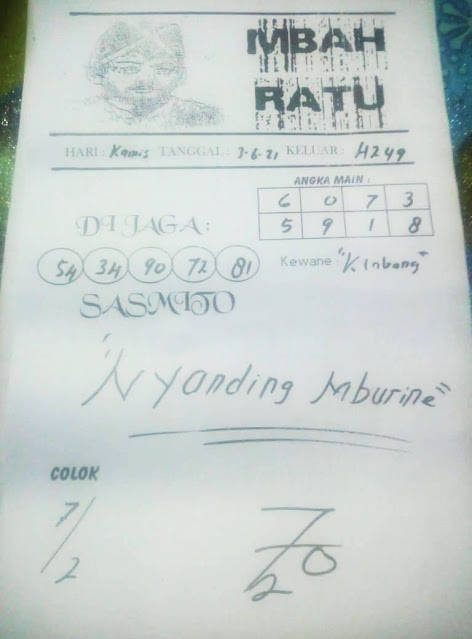 MBAH
RATU
HARI : Kamis TANGGAL : 3-6-21 KELUAR : 4249
ANGKA MAIN :
6 0 7 3
5 9 1 8
DI JAGA :
54 34 90 72 81
Kewane : "K Inbang"
SASMITO
"Nyanding Mburine"
COLOK
7/2
7
2 0